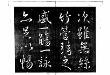 次雖無絲
竹管弦之
盛一觴一詠
亦足以暢